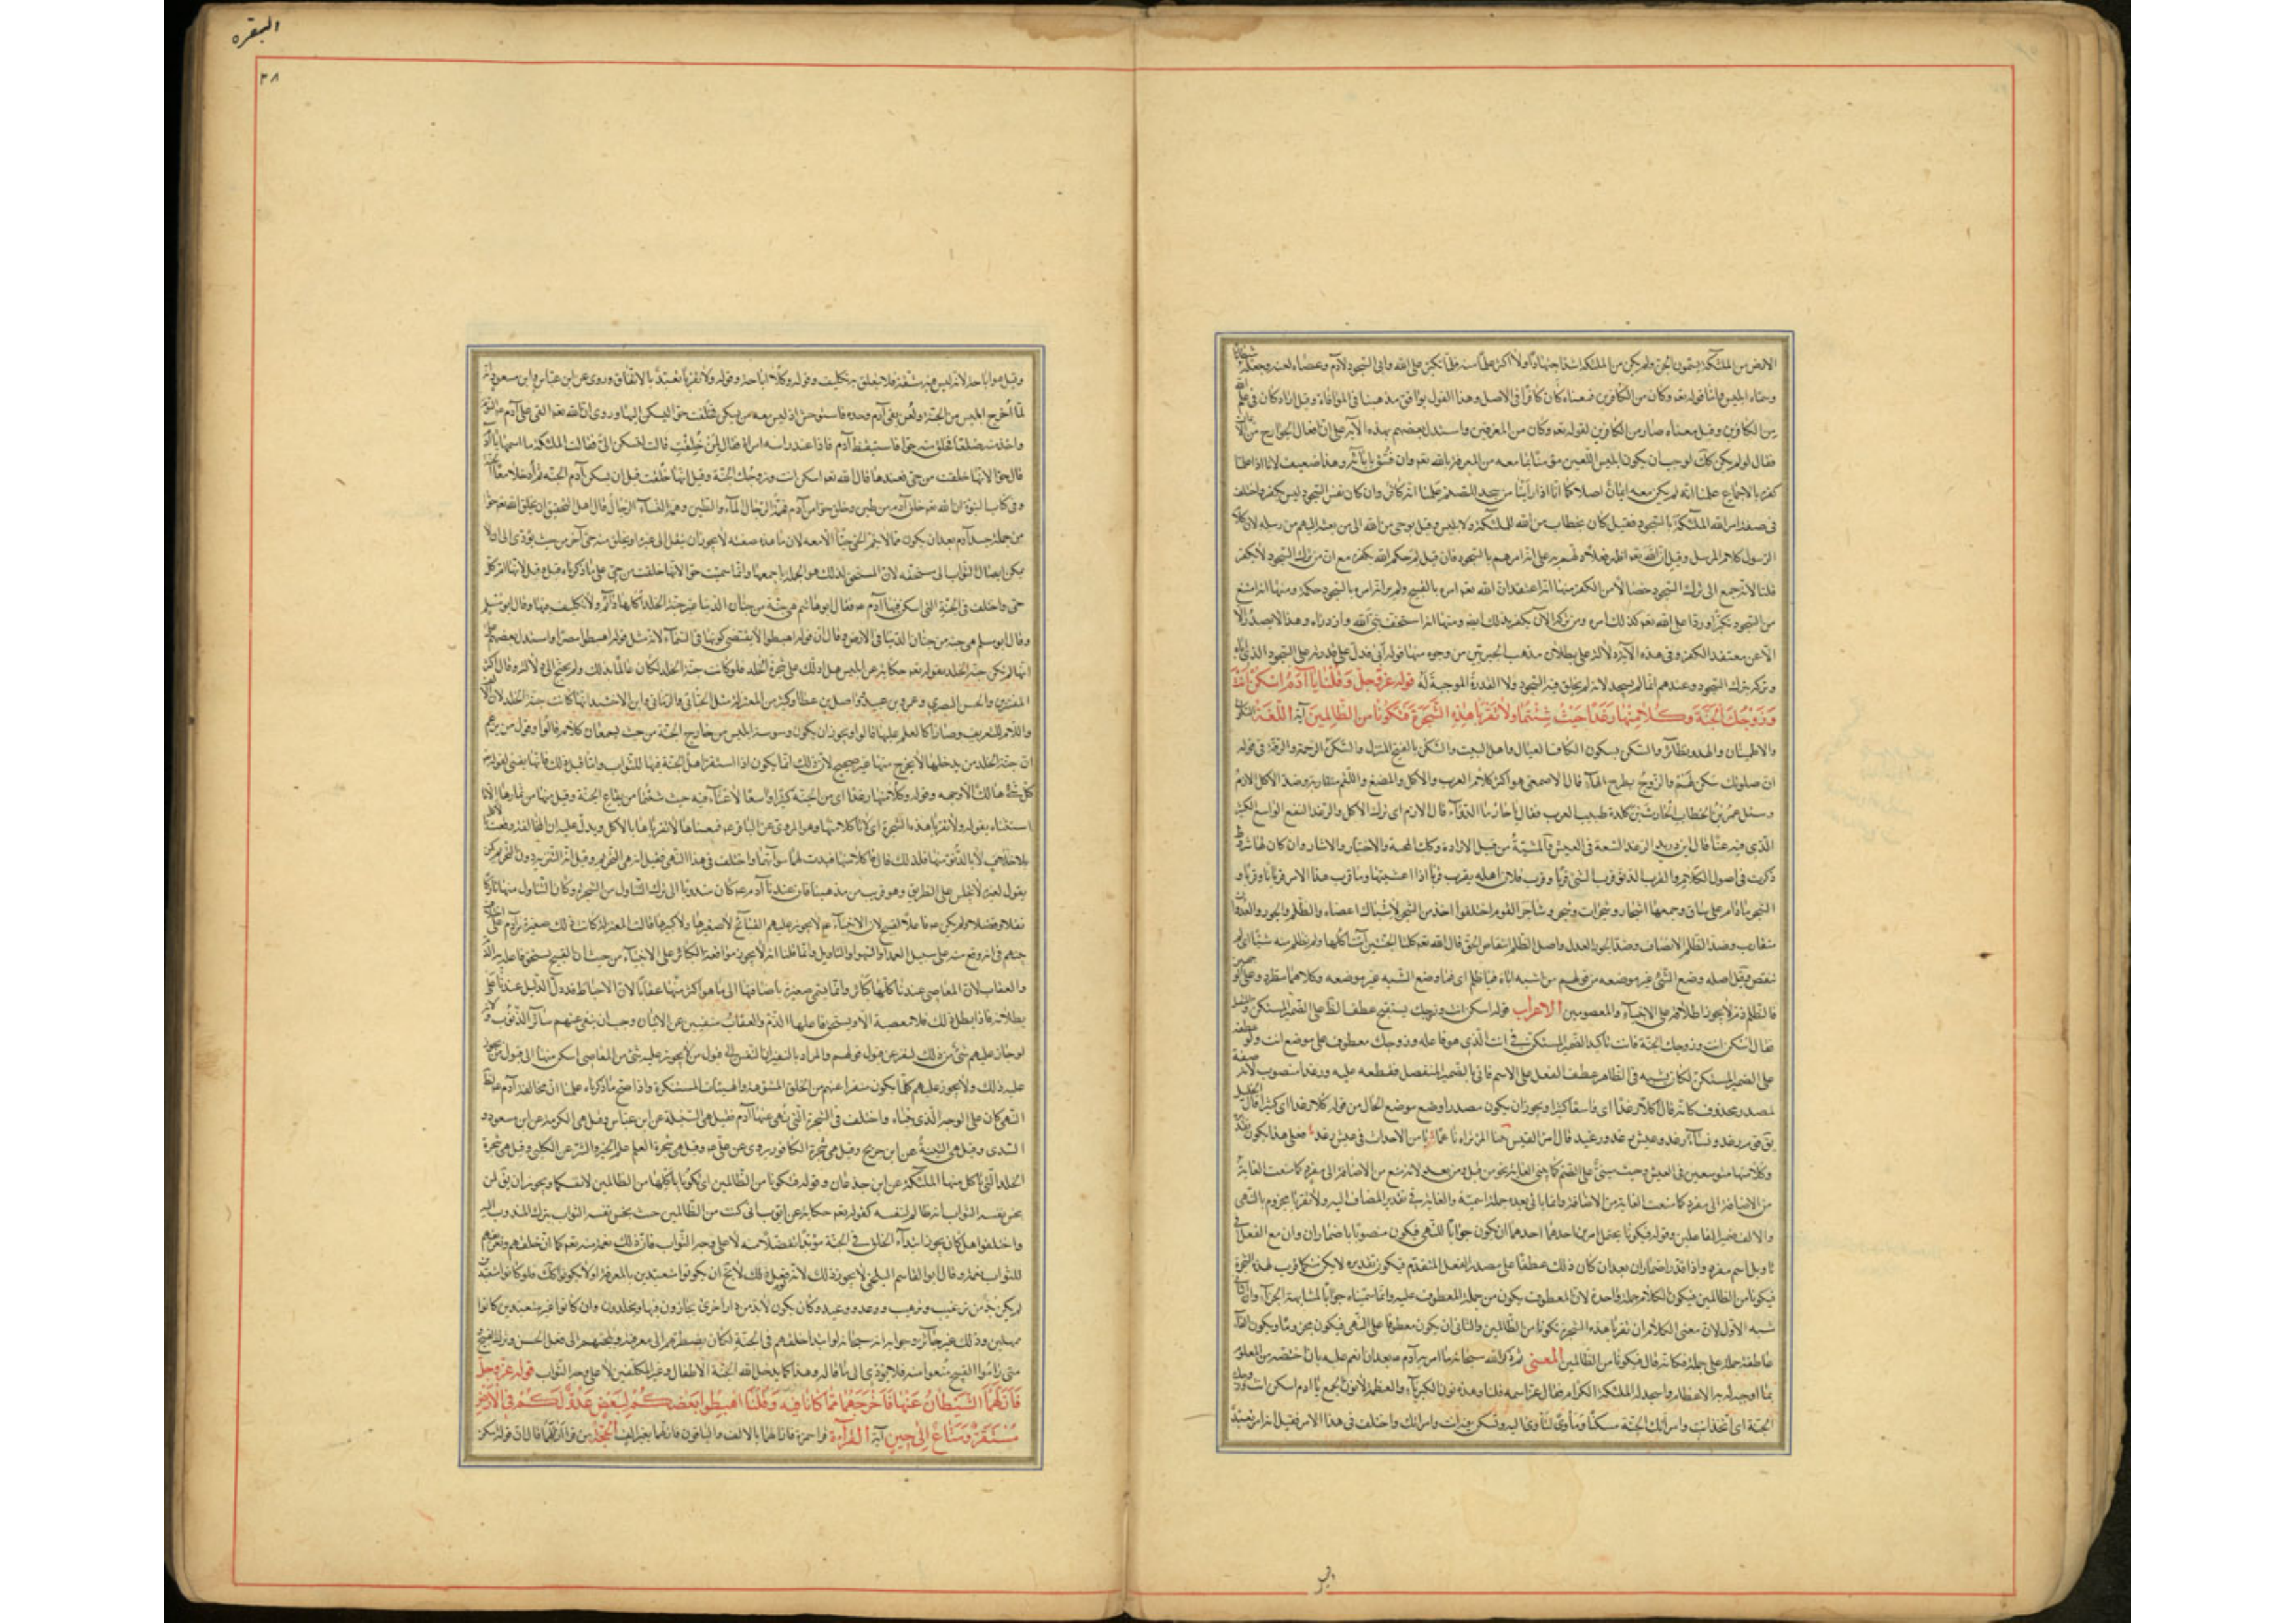 البقره
٣٨
الارض من الملئكة يسمون الجن ولم يكن من الملئكة اشد اجتهادا ولا اكثر علما منه فلما تكبر على الله وابى السجود لادم وعصاه لعنه وجعله شيطانا
وسماه ابليس واما قوله تعه وكان من الكافرين فمعناه كان كافرا في الاصل وهذا القول يوافق مذهبنا في الموافاة وقيل اراد كان في علم الله
من الكافرين وقيل معناه صار من الكافرين لقوله تعه وكان من المغرقين واستدل بعضهم بهذه الآية على ان افعال الجوارح من الايمان
فقال لو لم يكن كك لوجب ان يكون ابليس اللعين مؤمنا بما معه من المعرفة بالله تعه وان فسق بابائه وهذا ضعيف لانا اذا علمنا
كفره بالاجماع علمنا انه لم يكن معه ايمان اصلا كما انا اذا راينا من يسجد للصنم علمنا انه كافر وان كان نفس السجود ليس بكفر واختلف
في صفة امر الله الملئكة بالسجود فقيل كان بخطاب من الله للملئكة ولابليس وقيل بوحي من الله الى من بعثه اليهم من رسله لان كلام
الرسول كلام المرسل وقيل ان الله تعه اظهر فعلا دلهم به على انه امرهم بالسجود فان قيل لم حكم الله بكفره مع ان من ترك السجود لا يكفر
قلنا لانه جمع الى ترك السجود خصالا من الكفر منها انه اعتقد ان الله تعه امره بالقبيح ولم ير امره بالسجود حكمة ومنها انه امتنع
من السجود تكبرا وردا على الله تعه كذلك امره ومن تركه الآن يكفر بذلك ايضه ومنها انه استخف بنبي الله وازدراه وهذا لا يصدر الا
الا عن معتقد الكفر وفي هذه الآية دلالة على بطلان مذهب الجبريين من وجوه منها قوله ابى فدل على قدرته على السجود الذي اباه
وتركه بترك السجود وعندهم انما لم يسجد لانه لم يخلق فيه السجود ولا القدرة الموجبة له قوله عز وجل وَقُلْنَا يَا آدَمُ اسْكُنْ أَنْتَ
وَزَوْجُكَ الْجَنَّةَ وَكُلَا مِنْهَا رَغَدًا حَيْثُ شِئْتُمَا وَلَا تَقْرَبَا هٰذِهِ الشَّجَرَةَ فَتَكُونَا مِنَ الظَّالِمِينَ آية اللغة السكون
والاطمينان والهدو نظائر والسكن بسكون الكاف العيال واهل البيت والسكن بالفتح المنزل والسكن الرحمة والبركة في قوله
ان صلوتك سكن لهم والزوج بطرح الهاء قال الاصمعي هو اكثر كلام العرب والاكل والمضغ واللقم متقاربة وضد الاكل الازم
وسئل عمر بن الخطاب الحارث بن كلدة طبيب العرب فقال يا حار ما الدواء قال الازم اى ترك الاكل والرغد النفع الواسع الكثير
الذي فيه عنا قال ابن دريد الرغد السعة في العيش والمشية من قبيل الارادة وكك المحبة والاختيار والايثار وان كان لها شروط
ذكرت في اصول الكلام والقرب الدنو قرب الشئ قربا وقرب فلان اهله يقرب قربانا اذا غشيها وما قرب هذا الامر قربانا وقربا و
الشجر ما قام على ساق وجمعها اشجار وشجرات وشجر وتشاجر القوم اختلفوا اخذ من الشجر لاشتباك اعضاءه والظلم والجور والعدوان
متقارب وضد الظلم الانصاف وضد الجور العدل واصل الظلم انتقاص الحق قال الله تعه كلتا الجنتين آتت اكلها ولم تظلم منه شيئا اى لم
تنقص وقيل اصله وضع الشئ غير موضعه من قولهم من اشبه اباه فما ظلم اى فما وضع الشبه غير موضعه وكلاهما مطرد وعلى الوجهين
فالظلم ذم لا يجوز اطلاقه على الانبياء والمعصومين الاعراب قوله اسكن انت وزوجك يستقبح عطف الظاهر على الضمير المستكن
فقال اسكن انت وزوجك الجنة فانت تاكيد الضمير المستكن في اسكن الذي هو فاعله وزوجك معطوف على موضع انت ولو عطفه
على الضمير المستكن لكان يشبه في الظاهر عطف الفعل على الاسم فاتى بالضمير المنفصل فعطفه عليه ورغدا منصوب لانه صفة
لمصدر محذوف كانه قال اكلا رغدا اى واسعا كثيرا ويجوز ان يكون مصدرا وضع موضع الحال من قوله كلا رغدا اى كثيرا قال الخليل
يق قوم رغد ونساء رغد وعيش رغد ورغيد قال امرؤ القيس بينما المرء تراه ناعما يامن الاحداث في عيش رغد فعلى هذا يكون تقديره
وكلا منها متوسعين في العيش وحيث مبني على الضم كما يبنى الغاية نحو من قبل ومن بعد لانه منع من الاضافة الى مفرد كما منعت الغاية
من الاضافة الى مفرد كما منعت الغاية من الاضافة وانما ياتي بعده جملة اسمية والغاية في تقدير المضاف اليه ولا تقربا مجزوم بالنهى
والالف ضمير الفاعلين وقوله فتكونا يحتمل امرين احدهما ان يكون جوابا للنهى فيكون منصوبا باضمار ان وان مع الفعل في
تاويل اسم مفرد واذا قدر اضمار ان بعد الفاء كان ذلك عطفا على مصدر الفعل المتقدم فيكون تقديره لا يكن منكما قرب لهذه الشجرة
فتكونا من الظالمين فيكون الكلام جملة واحدة لان المعطوف يكون من جملة المعطوف عليه وانما سميناه جوابا لمشابهته الجزاء
شبه الاول لان معنى الكلام ان تقربا هذه الشجرة تكونا من الظالمين والثاني ان يكون معطوفا على النهى فيكون مجزوما ويكون الفاء
عاطفة جملة على جملة فكانه قال فلا تكونا من الظالمين المعنى ثم ذكر الله سبحانه ما امر به آدم عه بعد ان انعم عليه بما اختصه من العلوم
بما اوجب له به الاعظام واسجد له الملئكة الكرام فقال عز اسمه وقلنا وهذه نون الكبرياء والعظمة لا نون الجمع يا ادم اسكن انت وزوجك
الجنة اى اتخذ انت وامراتك الجنة مسكنا ومأوى لتاوى اليه وتسكن فيه انت وامراتك واختلف في هذا الامر فقيل انه امر تعبد
وقيل هو اباحة لانه ليس فيه مشقة فلا يتعلق به تكليف وقوله وكلا اباحة وقوله ولا تقربا تعبد بالاتفاق وروى عن ابن عباس وابن مسعود انه
لما اخرج ابليس من الجنة ولعن وبقى آدم وحده فاستوحش اذ ليس معه من يسكن فخلقت حوا ليسكن اليها وروى ان الله تعه القى على آدم عه النوم
واخذ منه ضلعا فخلق منه حوا فاستيقظ آدم فاذا عند راسه امراة فقال لم خلقت قالت لتسكن الى فقالت الملئكة ما اسمها يا آدم
قال حوا لانها خلقت من حي فعندها قال الله تعه اسكن انت وزوجك الجنة وقيل انها خلقت قبل ان يسكن آدم الجنة ثم ادخلا معا الجنة
وفي كتاب النبوة ان الله تعه خلق آدم من طين وخلق حوا من آدم فهمة الرجال الماء والطين وهمة النساء الرجال قال اهل التحقيق ان يخلق الله تعه حوا
من جملة جسد آدم بعد ان يكون مما لا يتم الحي حيا الا معه لان ما هذه صفته لا يجوز ان ينقل الى غيره او يخلق منه حي آخر من حيث يؤدي الى ان لا
يمكن ايصال الثواب الى مستحقه لان المستحق لذلك هو الجملة باجمعها وانما سميت حوا لانها خلقت من حي على ما ذكرناه قبل وقيل لانها ام كل
حي واختلف في الجنة التي اسكن فيها آدم عه فقال ابو هاشم هي جنة من جنان السماء غير جنة الخلد لان جنة الخلد اكلها دائم ولا تكليف فيها وقال ابو مسلم
وقال ابو مسلم هي جنة من جنان الدنيا في الارض وقال ان قوله اهبطوا لا يقتضي كونها في السماء لانه مثل قوله اهبطوا مصرا واستدل بعضهم على
انها لم تكن جنة الخلد بقوله تعه حكاية عن ابليس هل ادلك على شجرة الخلد فلو كانت جنة الخلد لكان عالما بذلك ولم يحتج الى دلالة وقال اكثر
المفسرين والحسن البصري وعمرو بن عبيد وواصل بن عطا وكثير من المعتزلة مثل الجبائي والرماني وابن الاخشيد انها كانت جنة الخلد لان الالف
واللام للتعريف وصارا كالعلم عليها قالوا ويجوز ان يكون وسوسة ابليس من خارج الجنة من حيث يسمعان كلامه قالوا وقول من يزعم
ان جنة الخلد من يدخلها لا يخرج منها غير صحيح لان ذلك انما يكون اذا استقر اهل الجنة فيها للثواب واما قبل ذلك فانها يفنى لقوله تعه
كل شئ هالك الا وجهه وقوله وكلا منها رغدا اى من الجنة كثيرا واسعا لا عناء فيه حيث شئتما من بقاع الجنة وقيل منها من ثمارها الا ما
استثناه بقوله ولا تقربا هذه الشجرة اى لا تاكلا منها وهو المروى عن الباقر عه فمعناه لا تقرباها بالاكل ويدل عليه ان المخالفة وقعت بالاكل
بلا خلاف لا بالدنو منها فلذلك قال فاكلا منها فبدت لهما سوآتهما واختلف في هذا النهى فقيل انه نهى التحريم وقيل انه نهى التنزيه دون التحريم كمن
يقول لغيره لا تجلس على الطريق وهو قريب من مذهبنا فان عندنا آدم عه كان مندوبا الى ترك التناول من الشجرة وكان بالتناول منها تاركا
نفلا وفضلا ولم يكن عه فاعلا لقبيح لان الانبياء عه لا يجوز عليهم القبائح لا صغيرها ولا كبيرها قالت المعتزلة كان ذلك صغيرة من آدم على اختلاف
بينهم في انه وقع منه على سبيل العمد او السهو او التاويل وانما قلنا انه لا يجوز مواقعة الكبائر على الانبياء من حيث ان القبيح يستحق فاعله به الذم
والعقاب لان المعاصي عندنا كلها كبائر وانما تسمى صغيرة باضافتها الى ما هو اكثر منها عقابا لان الاحباط قد دل الدليل عندنا على
بطلانه فاذا بطل ذلك فلا معصية الا ويستحق فاعلها الذم والعقاب واذا كان الذم والعقاب منفيين عن الانبياء وجب ان ينفى عنهم سائر الذنوب
لو جاز عليهم شئ من ذلك لنفر عن قبول قولهم والمراد بالتنفير ان النفس الى قول من لا يجوز عليه شئ من المعاصي اسكن منها الى قول من يجوز
عليه ذلك ولا يجوز عليهم كلما يكون منفرا عنهم من الخلق المشوهة والهيئات المستنكرة واذا صح ما ذكرناه علمنا ان مخالفة آدم عه لظاهر
النهى كان على الوجه الذي بيناه واختلف في الشجرة التي نهى عنها آدم فقيل هى السنبلة عن ابن عباس وقيل هى الكرمة عن ابن مسعود و
السدى وقيل هى التينة عن ابن جريج وقيل هى شجرة الكافور يروى عن على عه وقيل هى شجرة العلم علم الخير والشر عن الكلبي وقيل هى شجرة
الخلد التي تاكل منها الملئكة عن ابن جذعان وقوله فتكونا من الظالمين اى تكونا باكلها من الظالمين لانفسكما ويجوز ان يق لمن
بخس نفسه الثواب انه ظالم لنفسه كقوله تعه حكاية عن ايوب انى كنت من الظالمين حيث بخس نفسه الثواب بترك المندوب اليه
واختلفوا هل كان يجوز ابتداء الخلق في الجنة فجوز ذلك تفضلا منه لا على وجه الثواب فان ذلك نعمة منه تعه كما ان خلقهم وتعريضهم
للثواب نعمة وقال ابو القاسم البلخى لا يجوز ذلك لانه لو فعل ذلك لا يخ ان يكونوا متعبدين بالمعرفة او لا يكونوا كك فلو كانوا متعبدين
لم يكن بد من ترغيب وترهيب ووعد ووعيد وكان يكون لابد من دار اخرى يجازون فيها ويخلدون وان كانوا غير متعبدين كانوا
مهملين وذلك غير جائز وجوابه انه سبحانه لو ابتدا خلقهم في الجنة لكان يضطرهم الى معرفته ويلجئهم الى فعل الحسن وترك القبيح
متى راموا القبيح منعوا منه فلا يؤدى الى ما قاله وهذا كما يدخل الله الجنة الاطفال وغير المكلفين لا على وجه الثواب قوله عز وجل
فَأَزَلَّهُمَا الشَّيْطَانُ عَنْهَا فَأَخْرَجَهُمَا مِمَّا كَانَا فِيهِ وَقُلْنَا اهْبِطُوا بَعْضُكُمْ لِبَعْضٍ عَدُوٌّ وَلَكُمْ فِي الْأَرْضِ
مُسْتَقَرٌّ وَمَتَاعٌ إِلَى حِينٍ آية القرآءة قرا حمزة فازالهما بالالف والباقون فازلهما بغير الف الحجة من قرا ازلهما قال ان قوله اسكن